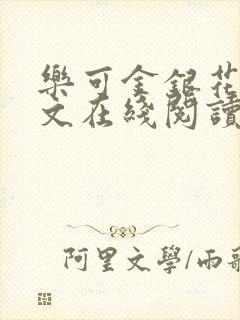 樂可金銀花
文在綫閱讀
阿里文學/雨歌